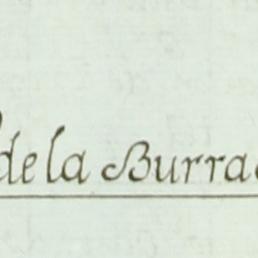 de la Burra